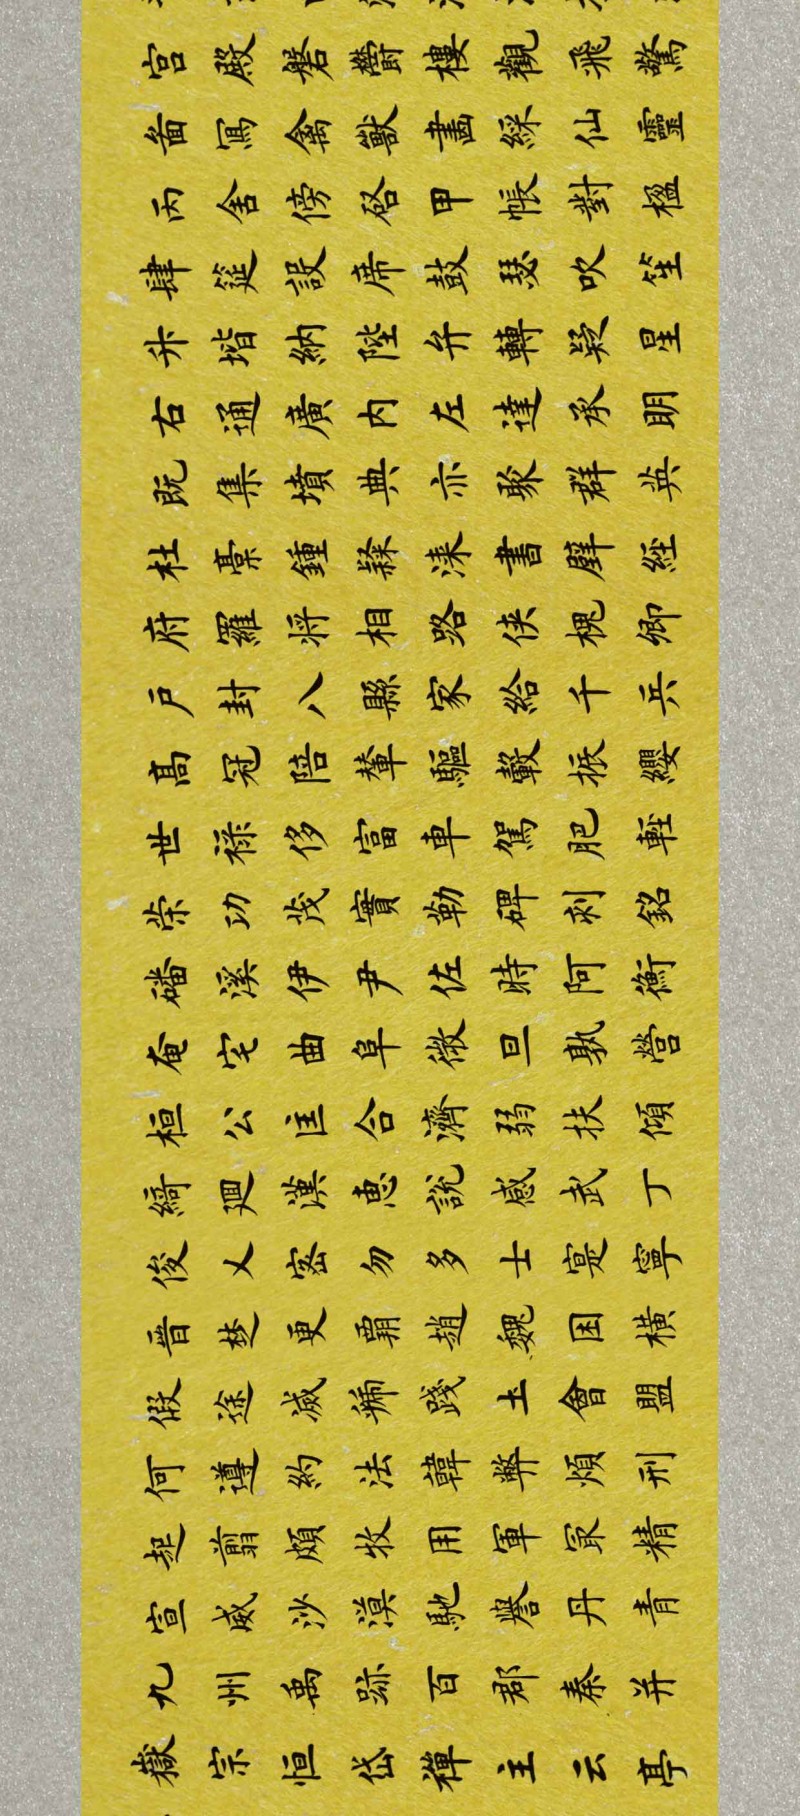 宮殿磐鬱樓觀飛驚
啚寫禽獸畫綵仙靈
丙舍傍啓甲帳對楹
肆筵設席鼓瑟吹笙
升堦納陛弁轉疑星
右通廣內左達承明
既集墳典亦聚群英
杜稾鍾隸漆書壁經
府羅將相路俠槐卿
戶封八縣家給千兵
高冠陪輦驅轂振纓
世祿侈富車駕肥輕
策功茂實勒碑刻銘
磻溪伊尹佐時阿衡
奄宅曲阜微旦孰營
桓公匡合濟弱扶傾
綺迴漢惠說感武丁
俊乂密勿多士寔寧
晉楚更霸趙魏困橫
假途滅虢踐土會盟
何遵約法韓弊煩刑
起翦頗牧用軍最精
宣威沙漠馳譽丹青
九州禹跡百郡秦并
嶽宗恒岱禪主云亭